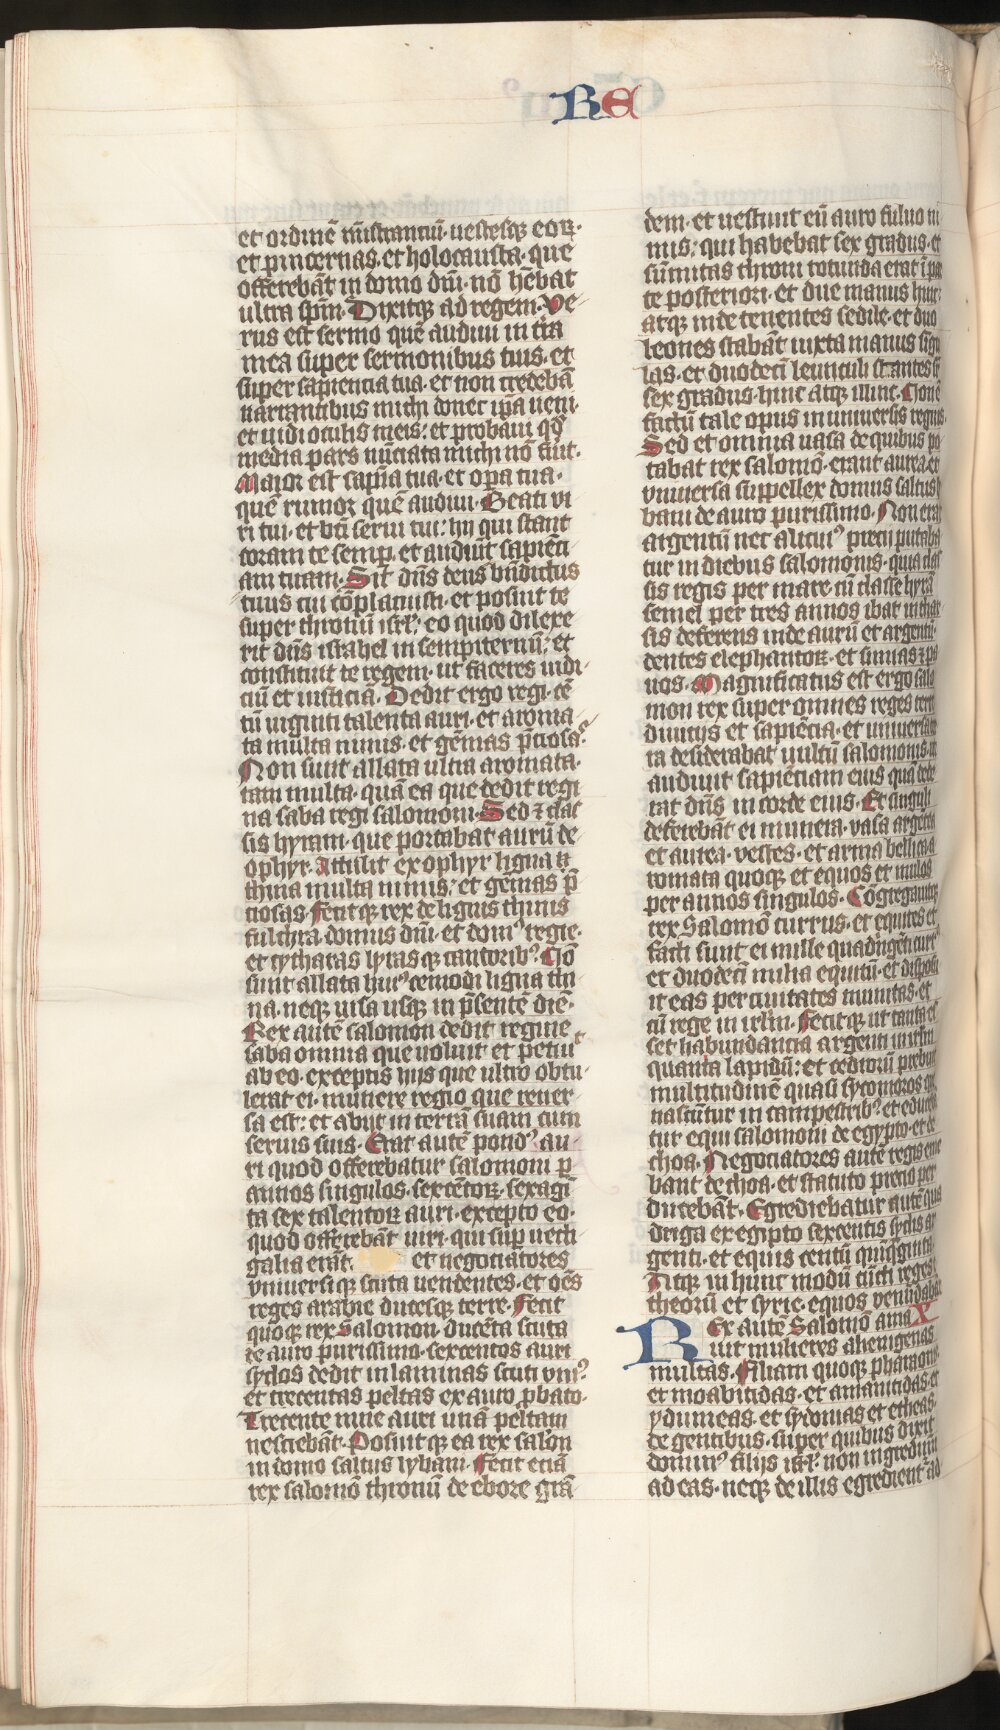 RE
et ordinē ministrantiū. uestesqꝫ eoꝝ.
et pincernas. et holocausta. que
offerebāt in domo dn̄i. nō hēbat
ultra spm̄. Dixitqꝫ ad regem. Ve
rus est sermo quē audiui in tr̄a
mea super sermonibus tuis. et
super sapiencia tua. et non credebā
narrantibus michi donec ip̄a ueni.
et uidi oculis meis: et probaui qđ
media pars nūciata michi nō fūit.
Maior est sapīa tua. et opera tua.
quē rumor quē audiui. Beati vi
ri tui. et bt̄i serui tui: hij qui stant
coram te semp. et audiūt sapiēci
am tuam. Sit dn̄s deus bn̄dictus
tuus cui cōplacuisti. et posuit te
super thronū isrl̄. eo quod dilexe
rit dn̄s israhel in sempiternū: et
constituit te regem. ut faceres iudi
ciū et iusticia. Dedit ergo regi. cē
tū uiginti talenta auri. et aroma
ta multa nimis. et gēmas p̄ciosas.
Non sunt allata ultra aromata.
tam multa. quā ea que dedit regi
na saba regi salomoni. Sed ⁊ clas
sis hyram. que portabat aurū de
ophyr. Attulit ex ophyr ligna
thina multa nimis: et gēmas p̄
ciosas. Fecitqꝫ rex de lignis thinis
fulchra domus dn̄i. et domꝰ regie.
et cytharas lyrasqꝫ cantoribꝰ. Nō
sunt allata huiꝰcemodi ligna thi
na. neqꝫ uisa usqꝫ in p̄sentē diē.
Rex autē salomon dedit regine
saba omnia que uoluit et petiuit
ab eo. exceptis hijs que ultro obtu
lerat ei. munere regio que reuer
sa est: et abijt in terrā suam cum
seruis suis. Erat autē pondꝰ au
ri quod offerebatur salomoni p
annos singulos. sexcētoꝝ. sexagī
ta sex talentoꝝ auri. excepto eo.
quod offerebāt uiri. qui sup uecti
galia erāt. et negociatores
vniuersiqꝫ scuta uendentes. et oēs
reges arabie ducesqꝫ terre. Fecit
quoqꝫ rex Salomon. ducēta scuta
de auro purissimo. sexcentos auri
syclos dedit in laminas scuti vniꝰ.
et trecentas peltas ex auro p̄bato.
Trecente mne auri unā peltam
uestiebāt. Posuitqꝫ ea rex salōn
in domo saltus lybani. Fecit etiā
rex salomō thronū de ebore grā
dem. et uestiuit eū auro fuluo ni
mis: qui habebat sex gradus. et
sūmitas throni rotunda erat ī par
te posteriori. et due manus hinc
atqꝫ inde tenentes sedile. et duo
leones stabāt iuxta manus sīgu
las. et duodecī leunculi stantes sr̄
sex gradus. hinc atqꝫ illinc. Non ē
factū tale opus in uniuersis regnis.
Sed et omnia uasa de quibus po
tabat rex salomō. erant aurea. et
vniuersa suppellex domus saltus ly
bani de auro purissimo. Non erat
argentū nec alicuiꝰ precij putaba
tur in diebus salomonis. quia clas
sis regis per mare. cū classe hyrā
semel per tres annos ibat in thar
sis deferens inde aurū et argentū.
dentes elephantoꝝ. et simias ⁊ pa
uos. Magnificatus est ergo salo
mon rex super omnes reges terre
diuicijs et sapiēcia. et uniuersa ter
ra desiderabat uultū salomonis. ut
audiunt sapiēciam eius quā dede
rat dn̄s in corde eius. Et singuli
deferebāt ei munera. vasa argētea
et aurea. vestes. et arma bellica. a
romata quoqꝫ et equos et mulos
per annos singulos. Cōgregauitqꝫ
rex Salomō currus. et equites et
facti sunt ei mille quadrīgēti currꝰ
et duodecī milia equitū. et disposu
it eas per ciuitates munitas. et
cū rege in irl̄m. Fecitqꝫ ut tanta es
set habundancia argenti in irl̄m
quanta lapidū: et cedrorū prebuit
multitudinē quasi sycomoros que
nascūtur in campestribꝰ. et educeba
tur equi salomoni de egypto. et de
choa. Negociatores autē regis eme
bant de choa. et statuto precio per
ducebāt. Egrediebatur autē qua
driga ex egipto sexcentis syclis ar
genti. et equus centū quīqꝫginta.
Atqꝫ in hunc modū cūcti reges
etheorū et syrie. equos venūdabāt. X
Rex autē Salomō ama
uit mulieres alienigenas
multas. Filiam quoqꝫ pharaonis.
et moabitidas. et amanitidas. et
ydumeas. et sydonias et etheas.
de gentibus. super quibus dixit
dominꝰ filijs isrl̄. non ingredimī
ad eas. neqꝫ de illis egredientꝉ ad